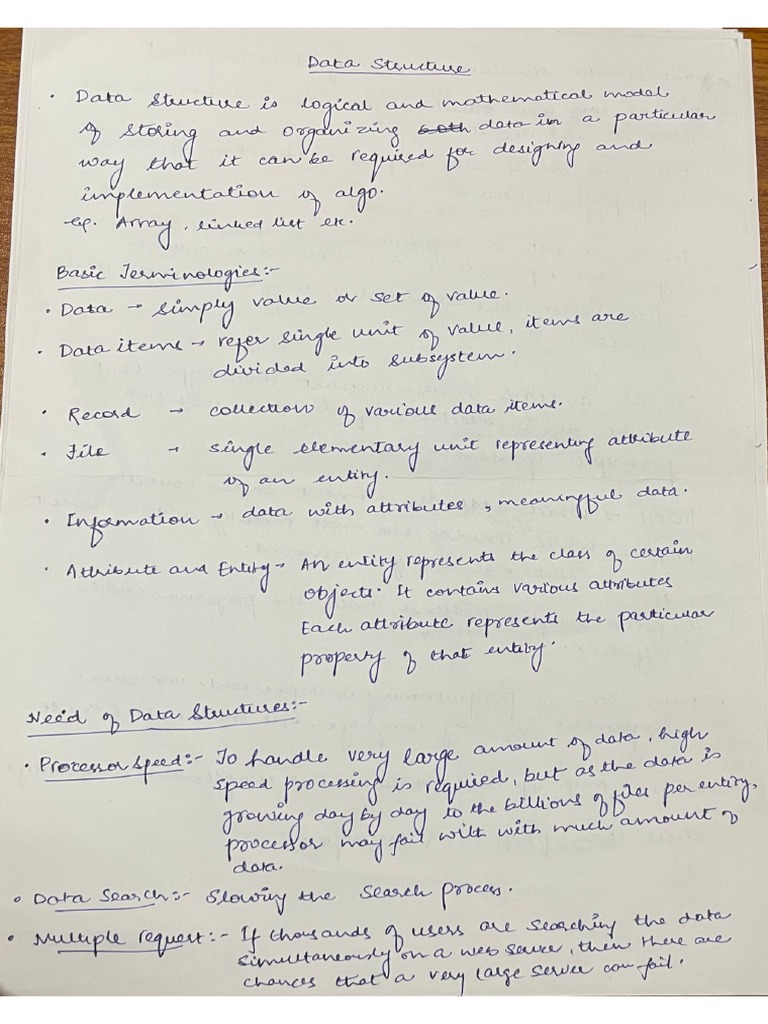 Data Structure
· Data Structure is logical and mathematical model
of storing and organizing both data in a particular
way that it can be required for designing and
implementation of algo.
eg. Array, linked list etc.
Basic Terminologies:-
· Data → simply value or set of value.
· Data items → refer single unit of value, items are
divided into subsystem.
· Record → collection of various data items.
· File → single elementary unit representing attribute
of an entity.
· Information → data with attributes, meaningful data.
· Attribute and Entity → An entity represents the class of certain
objects. It contains various attributes
Each attribute represents the particular
property of that entity.
Need of Data Structures:-
· Processor speed:- To handle very large amount of data, high
speed processing is required, but as the data is
growing day by day to the billions of files per entity,
processor may fail with with much amount of
data.
· Data Search:- Slowing the search process.
· Multiple request:- If thousands of users are searching the data
simultaneously on a web server, then there are
chances that a very large server can fail.